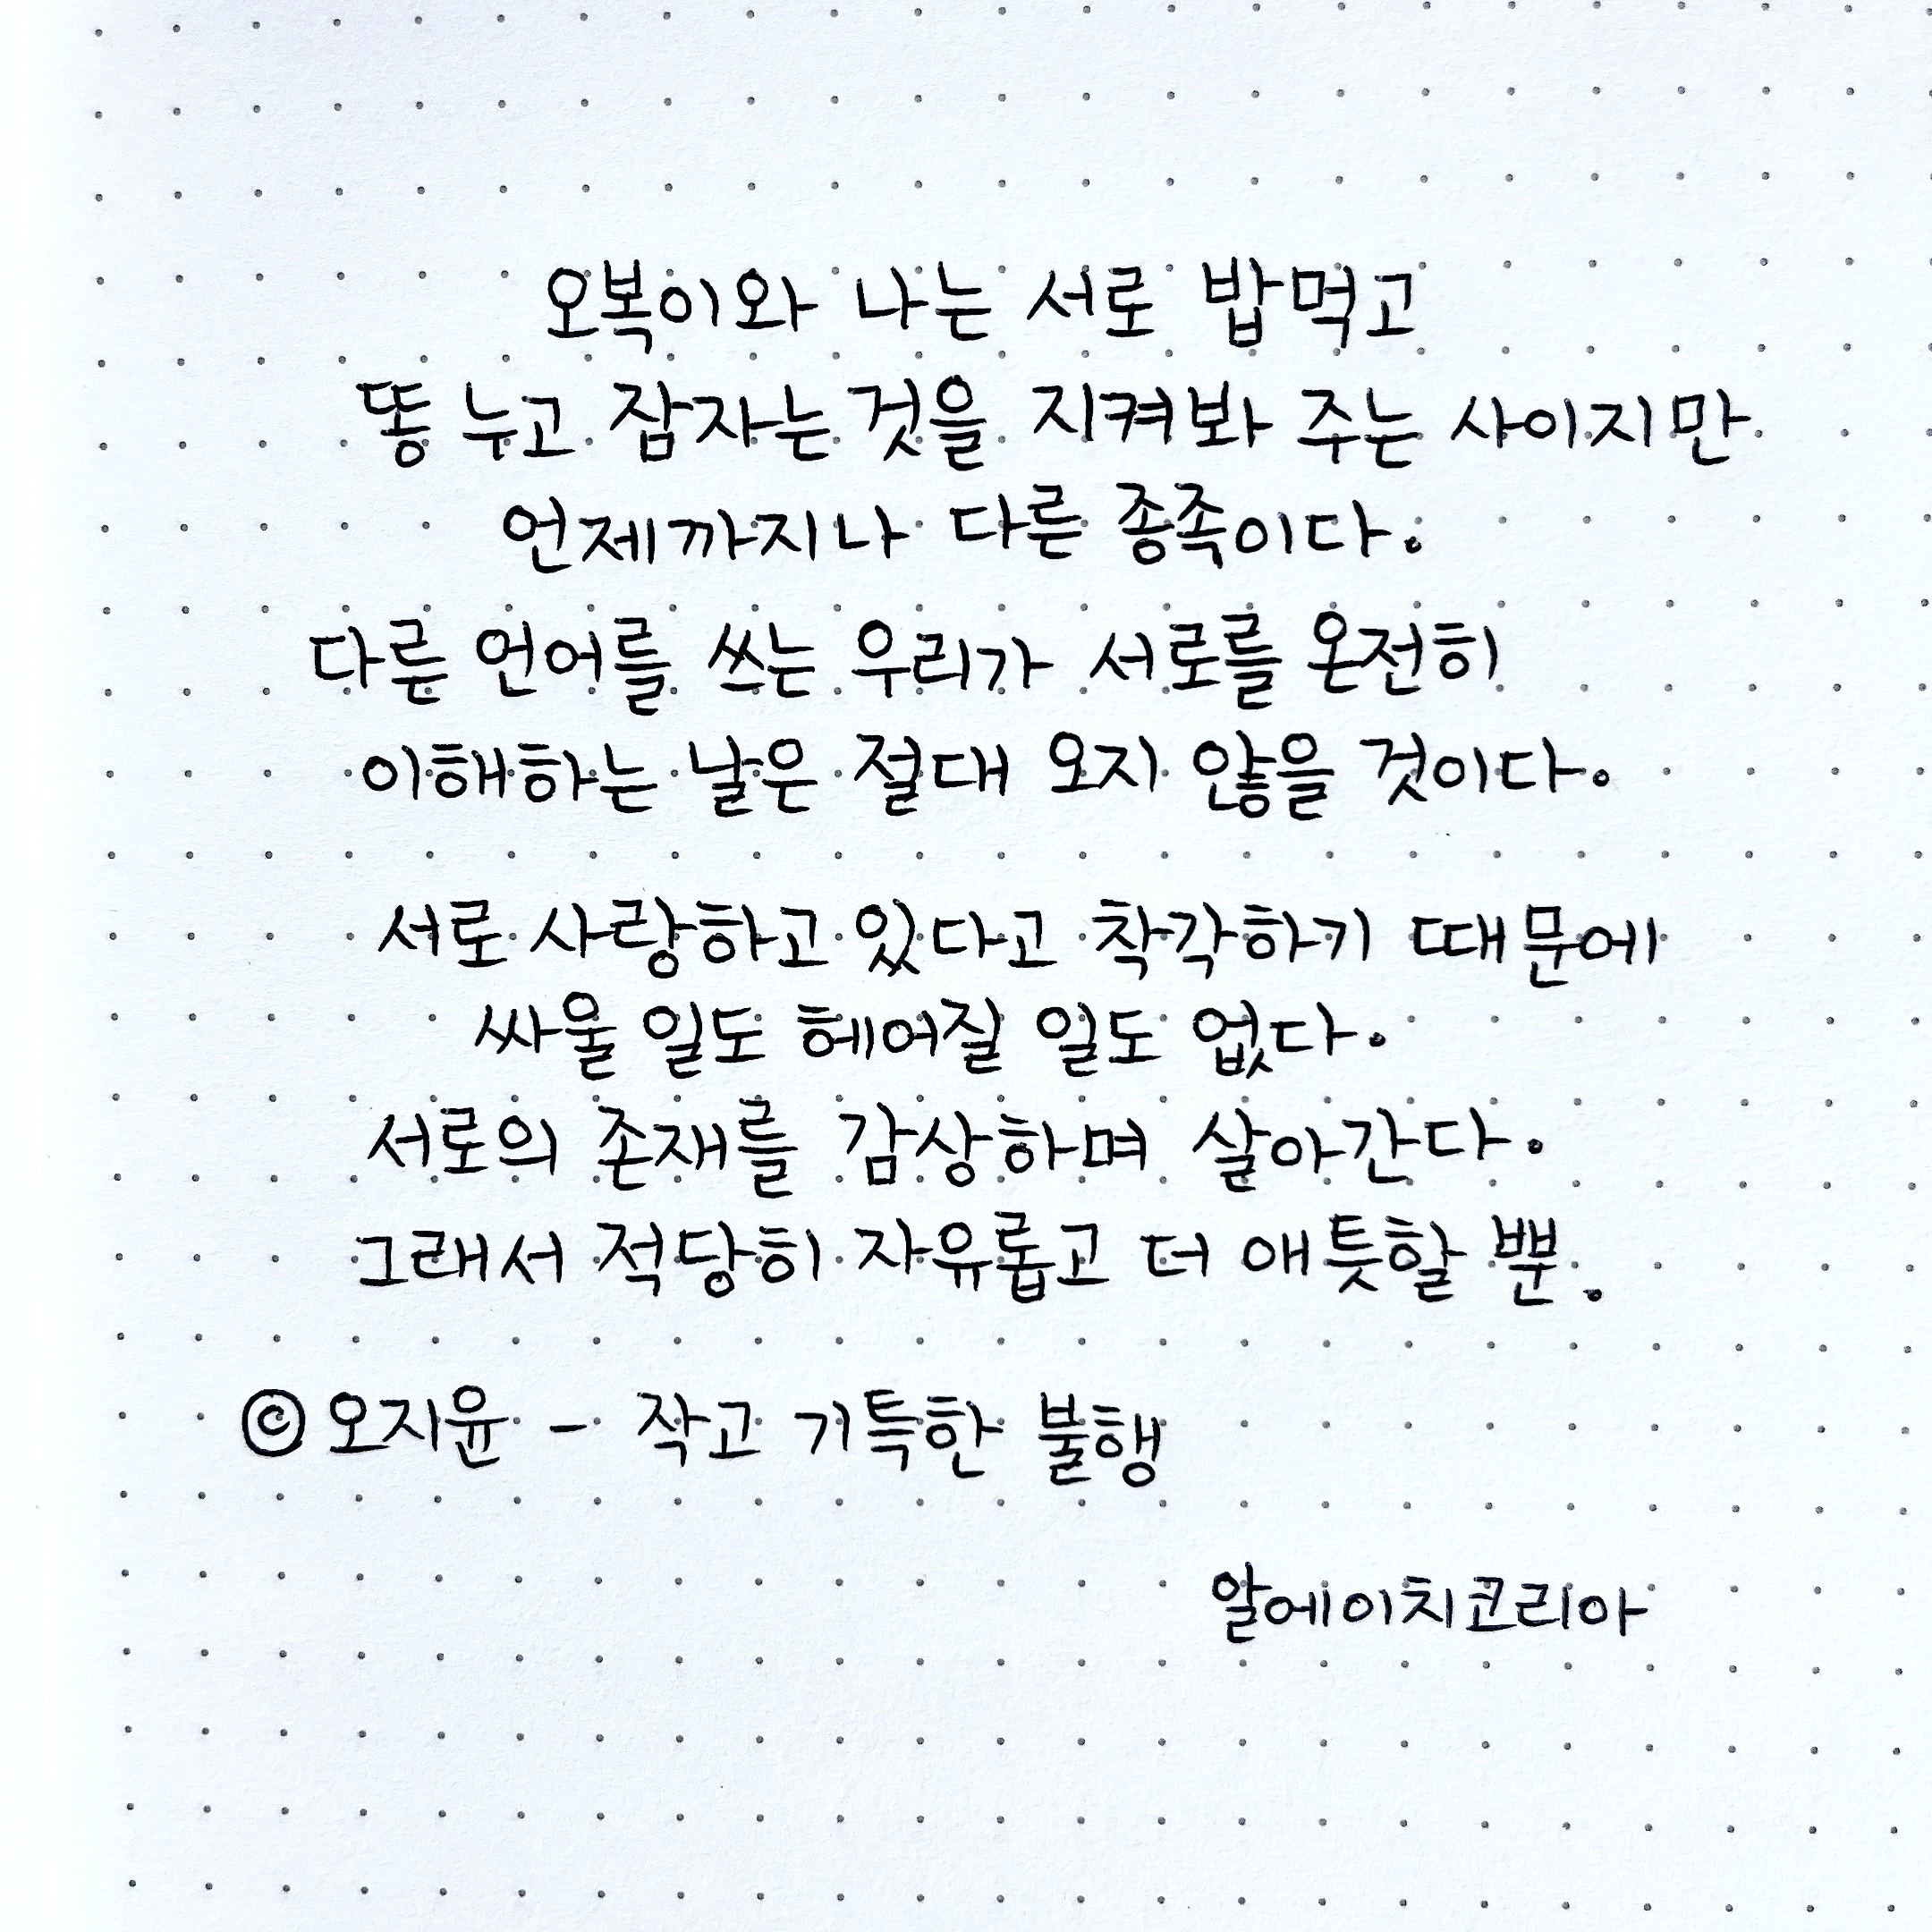 오복이와 나는 서로 밥먹고
똥 누고 잠자는 것을 지켜봐 주는 사이지만
언제까지나 다른 종족이다.
다른 언어를 쓰는 우리가 서로를 온전히
이해하는 날은 절대 오지 않을 것이다.
서로 사랑하고 있다고 착각하기 때문에
싸울 일도 헤어질 일도 없다.
서로의 존재를 감상하며 살아간다.
그래서 적당히 자유롭고 더 애틋할 뿐.
© 오지윤 - 작고 기특한 불행
알에이치코리아